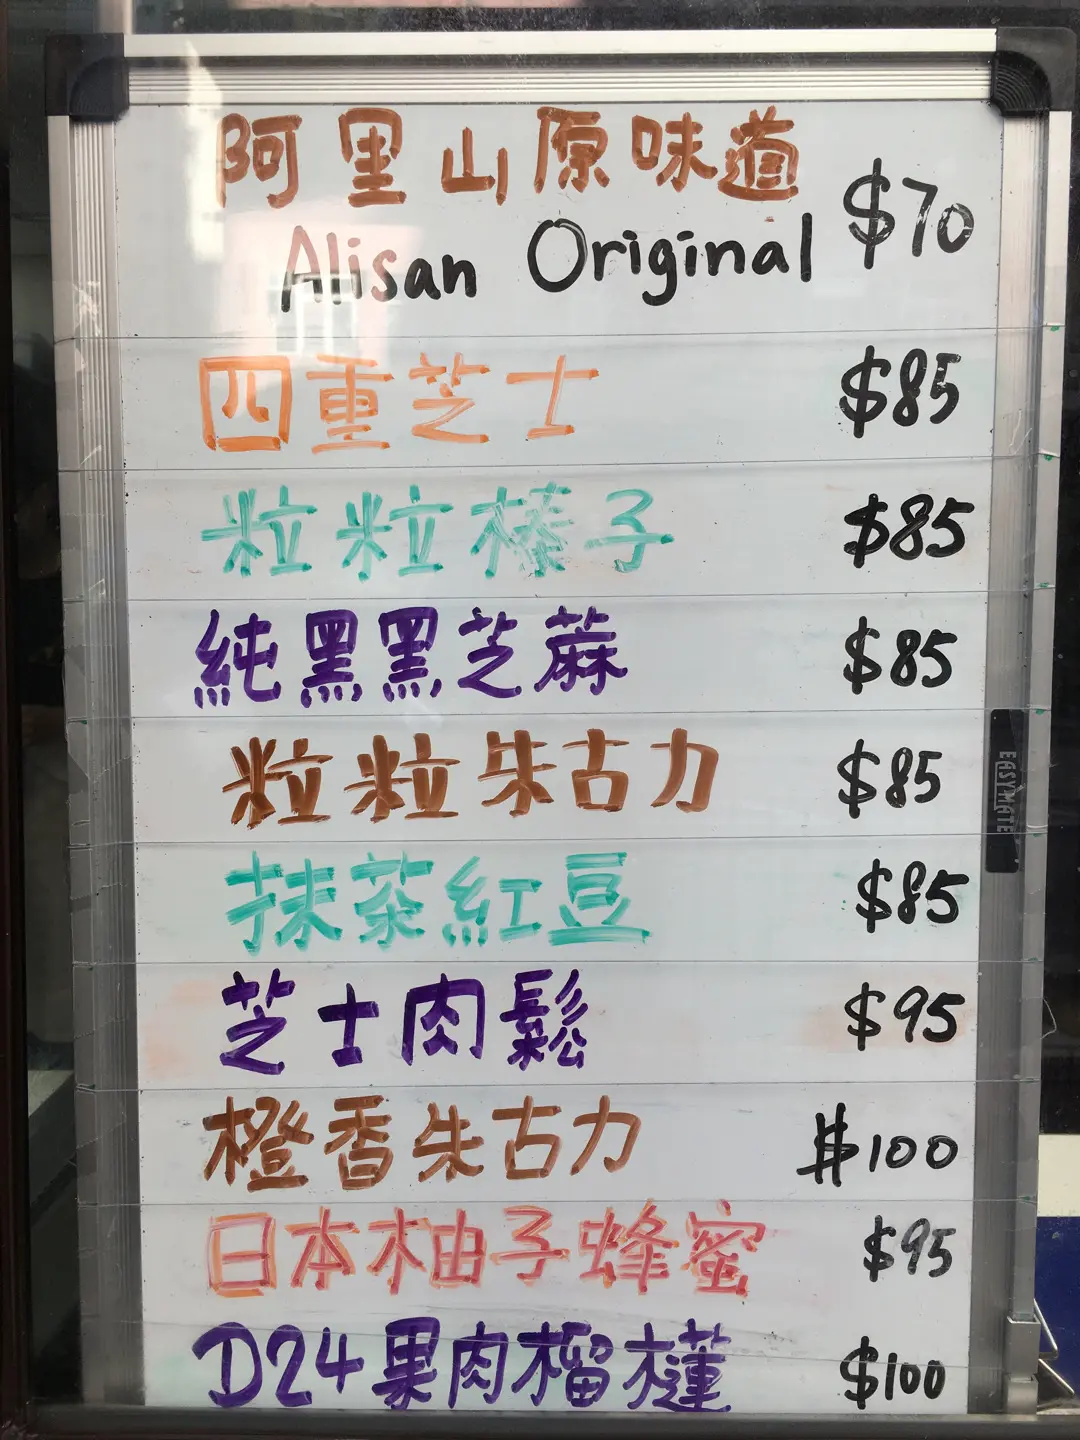 阿里山原味道 $70
Alisan Original
四重芝士 $85
粒粒榛子 $85
純黑黑芝蔴 $85
粒粒朱古力 $85
抹茶紅豆 $85
芝士肉鬆 $95
橙香朱古力 $100
日本柚子蜂蜜 $95
D24果肉榴槤 $100
EASYMATE